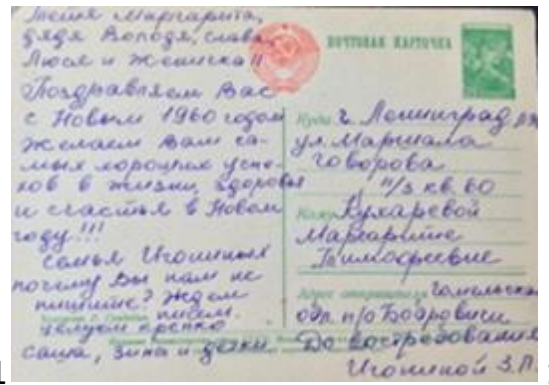 Тётя Маргарита,
дядя Володя, Слава,
Люся и Женечка!!
Поздравляем Вас
с Новым 1960 годом
желаем Вам са-
мых хороших успе-
хов в жизни, здоровья
и счастья в Новом
году!!!
Семья Игониных
почему Вы нам не
пишите? Ждем
писем.
целуем крепко
Саша, Зина и детки.
ПОЧТОВАЯ КАРТОЧКА
Куда г. Ленинград
ул. Маршала
Говорова
11/3 кв. 60
Кому Кухаревой
Маргарите
Тимофеевне
Адрес отправителя Гомельская
обл. п/о Бобровичи
До востребования
Игониной З.П.